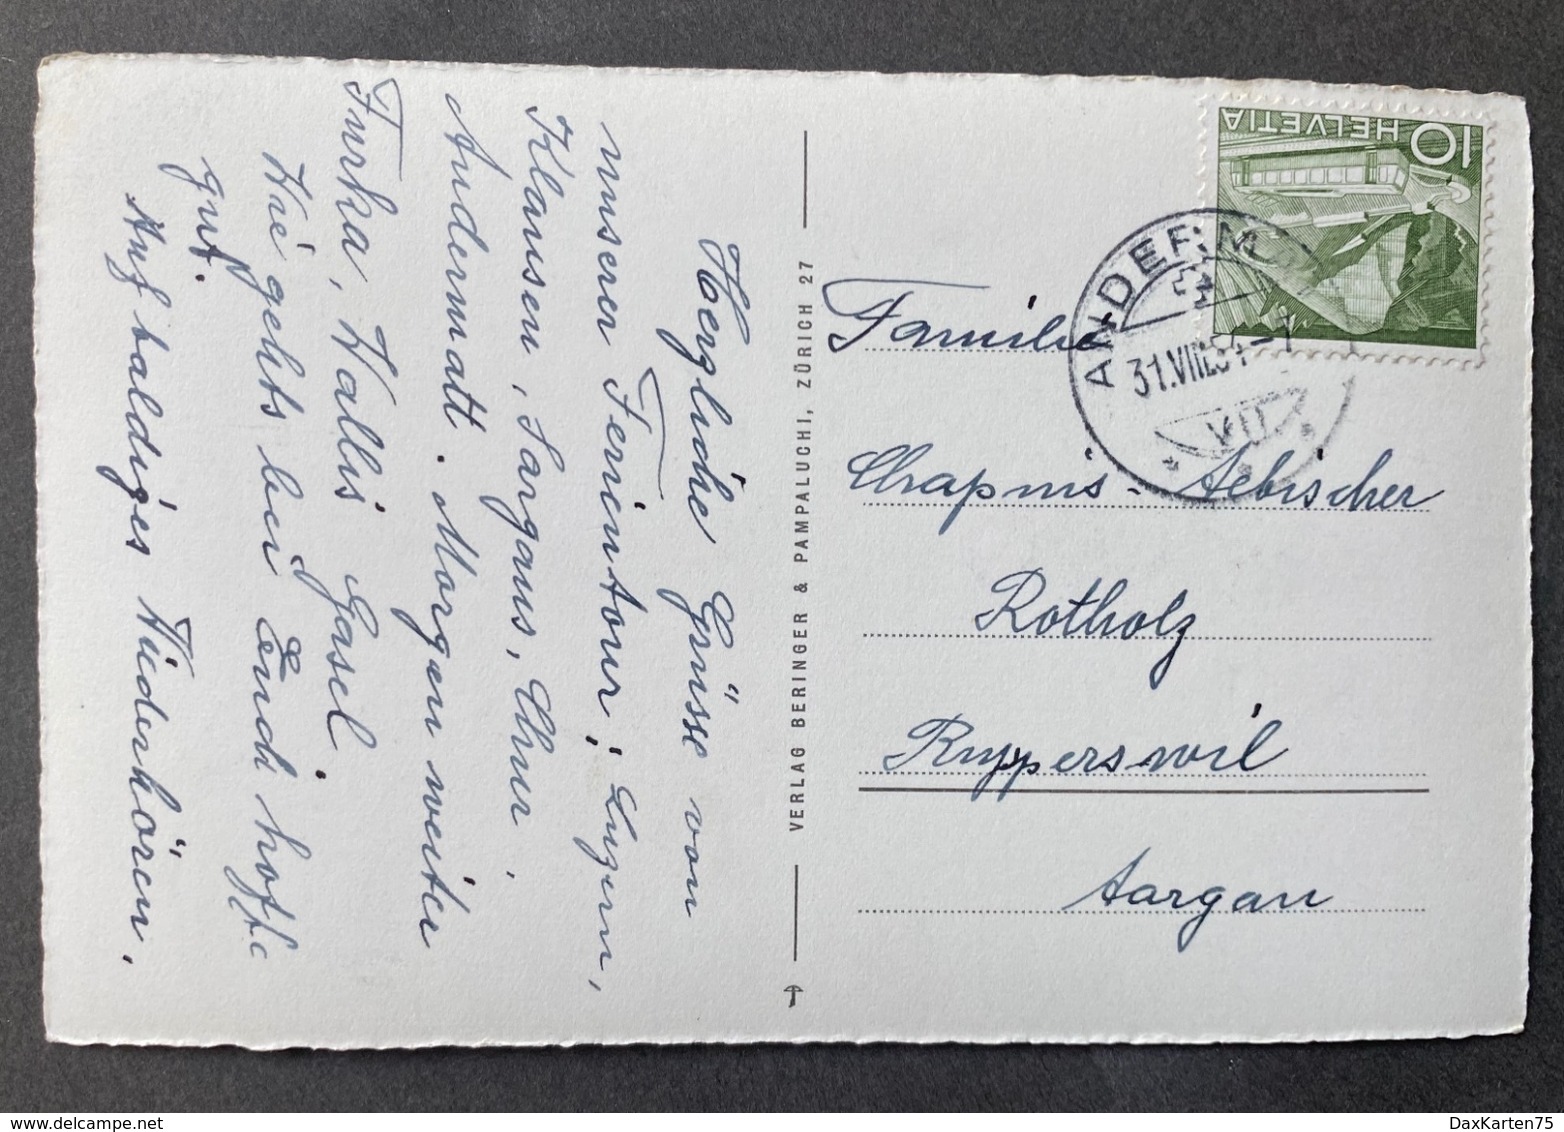 Herzliche Grüsse von
unserer Ferientour; Luzern,
Klausen, Sargans, Chur,
Andermatt. Morgen weiter
Furka, Wallis
Wie gehts bei Euch hoffe
gut.
Auf baldiges Wiederhören,
VERLAG BERINGER & PAMPALUCHI, ZÜRICH 27
10 HELVETIA
31.VIII.
VII
Familie
Chapuis-Aebischer
Rotholz
Rupperswil
Aargau
DaxKarten75